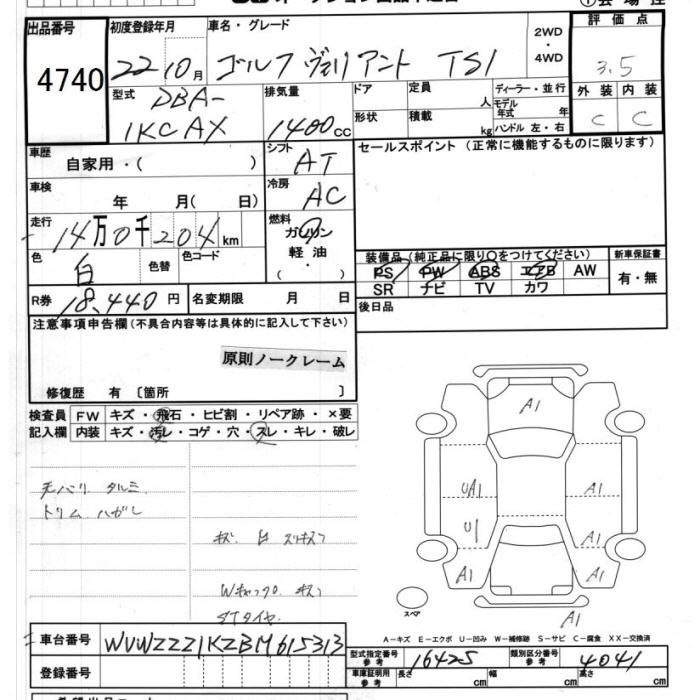 出品番号
4740
初度登録年月
22 10月
車名・グレード
ゴルフ ヴァリアント TSI
2WD
・
4WD
評価点
3.5
外装 内装
C C
型式
DBA-
1KCAX
排気量
1400cc
ドア
形状
定員
人
積載
kg
ディーラー・並行
モデル年式 年
ハンドル 左・右
車歴
自家用・( )
シフト
AT
セールスポイント (正常に機能するものに限ります)
車検
年 月( 日)
冷房
AC
走行
14万0千204km
燃料
ガソリン
軽油
( ・ )
色
白
色替
色コード
装備品 (純正品に限り○をつけてください)
PS PW ABS エアB AW
SR ナビ TV カワ
新車保証書
有・無
R券
18,440円
名変期限 月 日
後日品
注意事項申告欄(不具合内容等は具体的に記入して下さい)
原則ノークレーム
修復歴 有〔箇所 〕
検査員
記入欄
FW キズ・飛石・ヒビ割・リペア跡・×要
内装 キズ・汚レ・コゲ・穴・スレ・キレ・破レ
天バリ タルミ
トリム ハガレ
Wキャップ キズ
A1
UA1
A1
U1
A1
A1
A1
A1
スペア
A−キズ E−エクボ U−凹み W−補修跡 S−サビ C−腐食 XX−交換済
車台番号
WVWZZZ1KZBM615313
登録番号
型式指定番号
参考
16425
類別区分番号
参考
4041
車庫証明用
参考
長さ cm
幅 cm
高さ cm